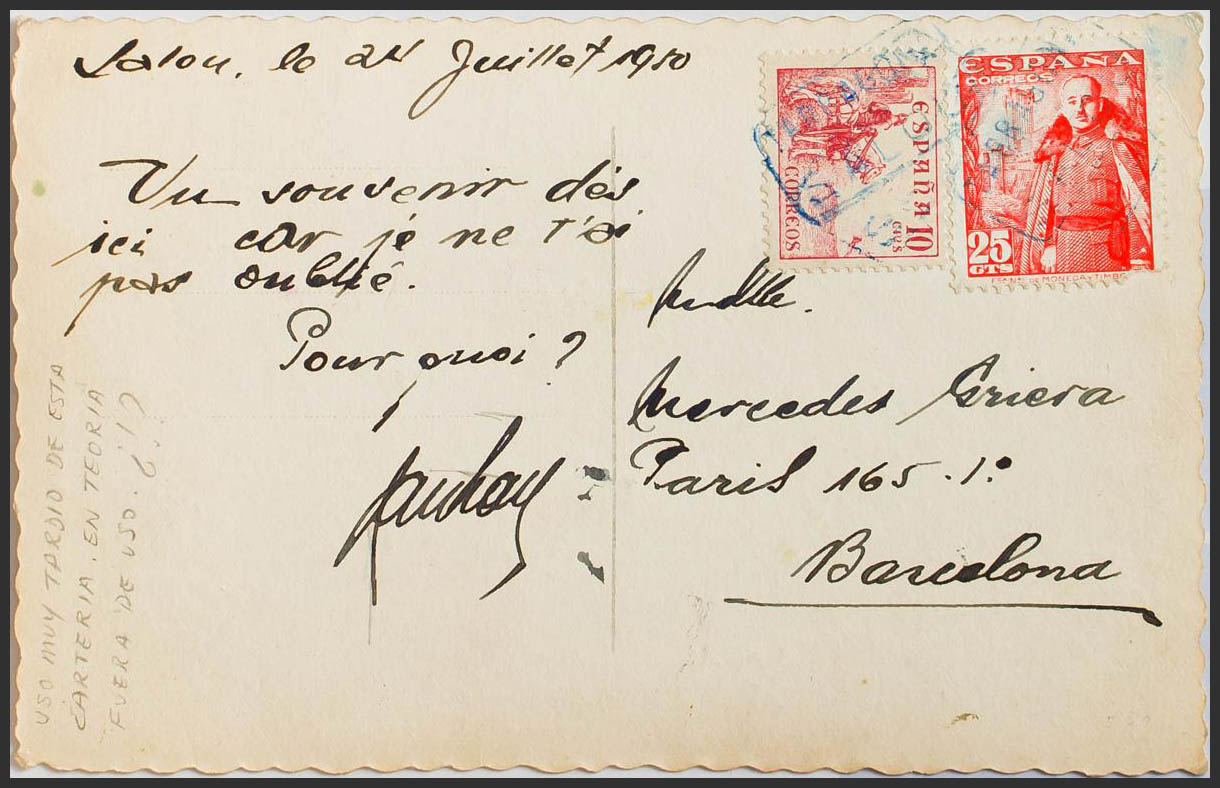 Salou, le 24 Juillet 1950
Un souvenir dès
ici car je ne t'ai
pas oublié.
Pour quoi?
ESPAÑA
CORREOS
10
CTOS
ESPAÑA
CORREOS
25
CTS
Mdlle.
Mercedes Griera
Paris 165-1º
Barcelona
USO MUY TARDIO DE ESTA
CARTERIA. EN TEORIA
FUERA DE USO.